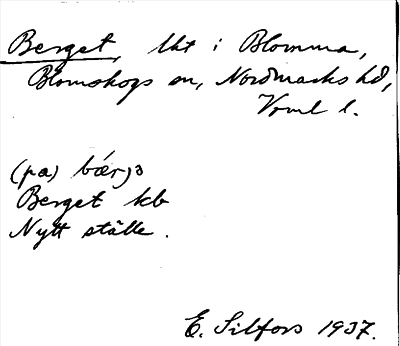 Berget, lht i Blomma,
Blomskogs sn, Nordmarks hd,
Vrml l.
(pa) bærjɔ
Berget kb
Nytt ställe.
E. Silfors 1937.